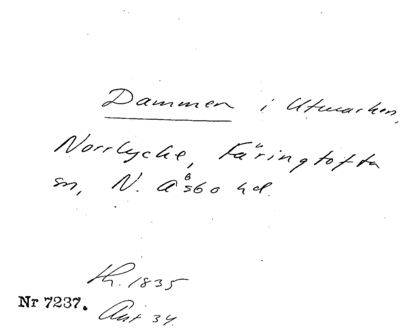 Dammen i Utmarken,
Norrlycke, Färingtofta
sn, N. Åsbo hd.
1835
Nr 7237.
34